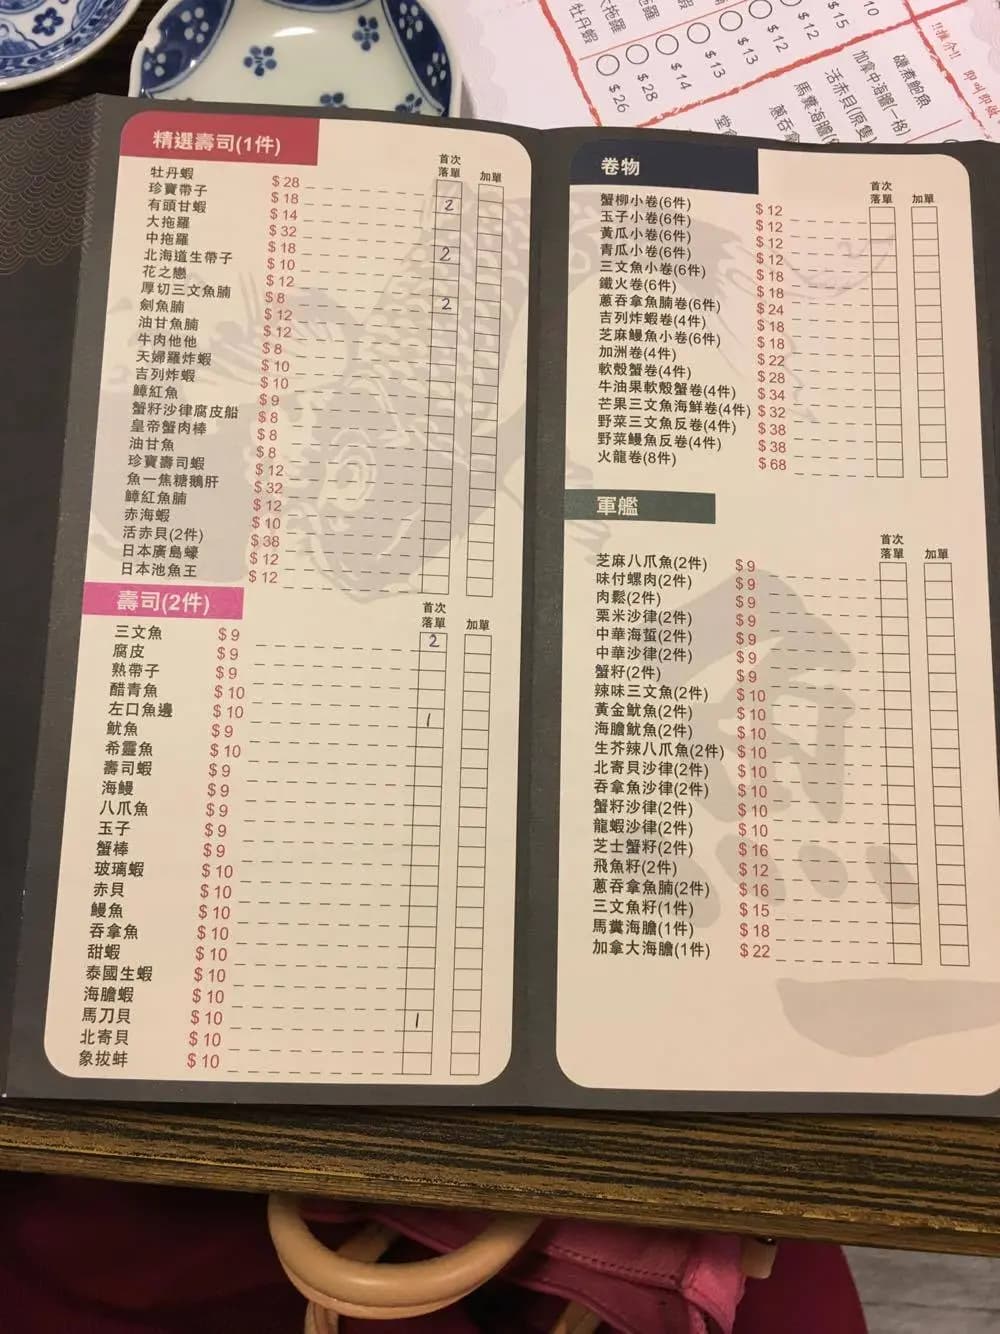 大拖羅
牡丹蝦
$26
$28
$14
$13
$13
$12
$12
$15
10
!!推介!!
即叫即做
磯煮鮑魚
加拿中海膽(一格)
活赤貝(原隻)
馬糞海膽
精選壽司(1件)
首次落單 加單
牡丹蝦 $28
珍寶帶子 $18 2
有頭甘蝦 $14
大拖羅 $32
中拖羅 $18 2
北海道生帶子 $10
花之戀 $12
厚切三文魚腩 $8 2
劍魚腩 $12
油甘魚腩 $12
牛肉他他 $8
天婦羅炸蝦 $10
吉列炸蝦 $10
鱆紅魚 $9
蟹籽沙律腐皮船 $8
皇帝蟹肉棒 $8
油甘魚 $8
珍寶壽司蝦 $12
魚一焦糖鵝肝 $32
鱆紅魚腩 $12
赤海蝦 $10
活赤貝(2件) $38
日本廣島蠔 $12
日本池魚王 $12
壽司(2件)
首次落單 加單
三文魚 $9 2
腐皮 $9
熟帶子 $9
醋青魚 $10
左口魚邊 $10 1
魷魚 $9
希靈魚 $10
壽司蝦 $9
海鰻 $9
八爪魚 $9
玉子 $9
蟹棒 $9
玻璃蝦 $10
赤貝 $10
鰻魚 $10
吞拿魚 $10
甜蝦 $10
泰國生蝦 $10
海膽蝦 $10
馬刀貝 $10 1
北寄貝 $10
象拔蚌 $10
卷物
首次落單 加單
蟹柳小卷(6件) $12
玉子小卷(6件) $12
黃瓜小卷(6件) $12
青瓜小卷(6件) $12
三文魚小卷(6件) $18
鐵火卷(6件) $18
蔥吞拿魚腩卷(6件) $24
吉列炸蝦卷(4件) $18
芝麻鰻魚小卷(6件) $18
加洲卷(4件) $22
軟殼蟹卷(4件) $28
牛油果軟殼蟹卷(4件) $34
芒果三文魚海鮮卷(4件) $32
野菜三文魚反卷(4件) $38
野菜鰻魚反卷(4件) $38
火龍卷(8件) $68
軍艦
首次落單 加單
芝麻八爪魚(2件) $9
味付螺肉(2件) $9
肉鬆(2件) $9
粟米沙律(2件) $9
中華海蜇(2件) $9
中華沙律(2件) $9
蟹籽(2件) $9
辣味三文魚(2件) $10
黃金魷魚(2件) $10
海膽魷魚(2件) $10
生芥辣八爪魚(2件) $10
北寄貝沙律(2件) $10
吞拿魚沙律(2件) $10
蟹籽沙律(2件) $10
龍蝦沙律(2件) $10
芝士蟹籽(2件) $16
飛魚籽(2件) $12
蔥吞拿魚腩(2件) $16
三文魚籽(1件) $15
馬糞海膽(1件) $18
加拿大海膽(1件) $22